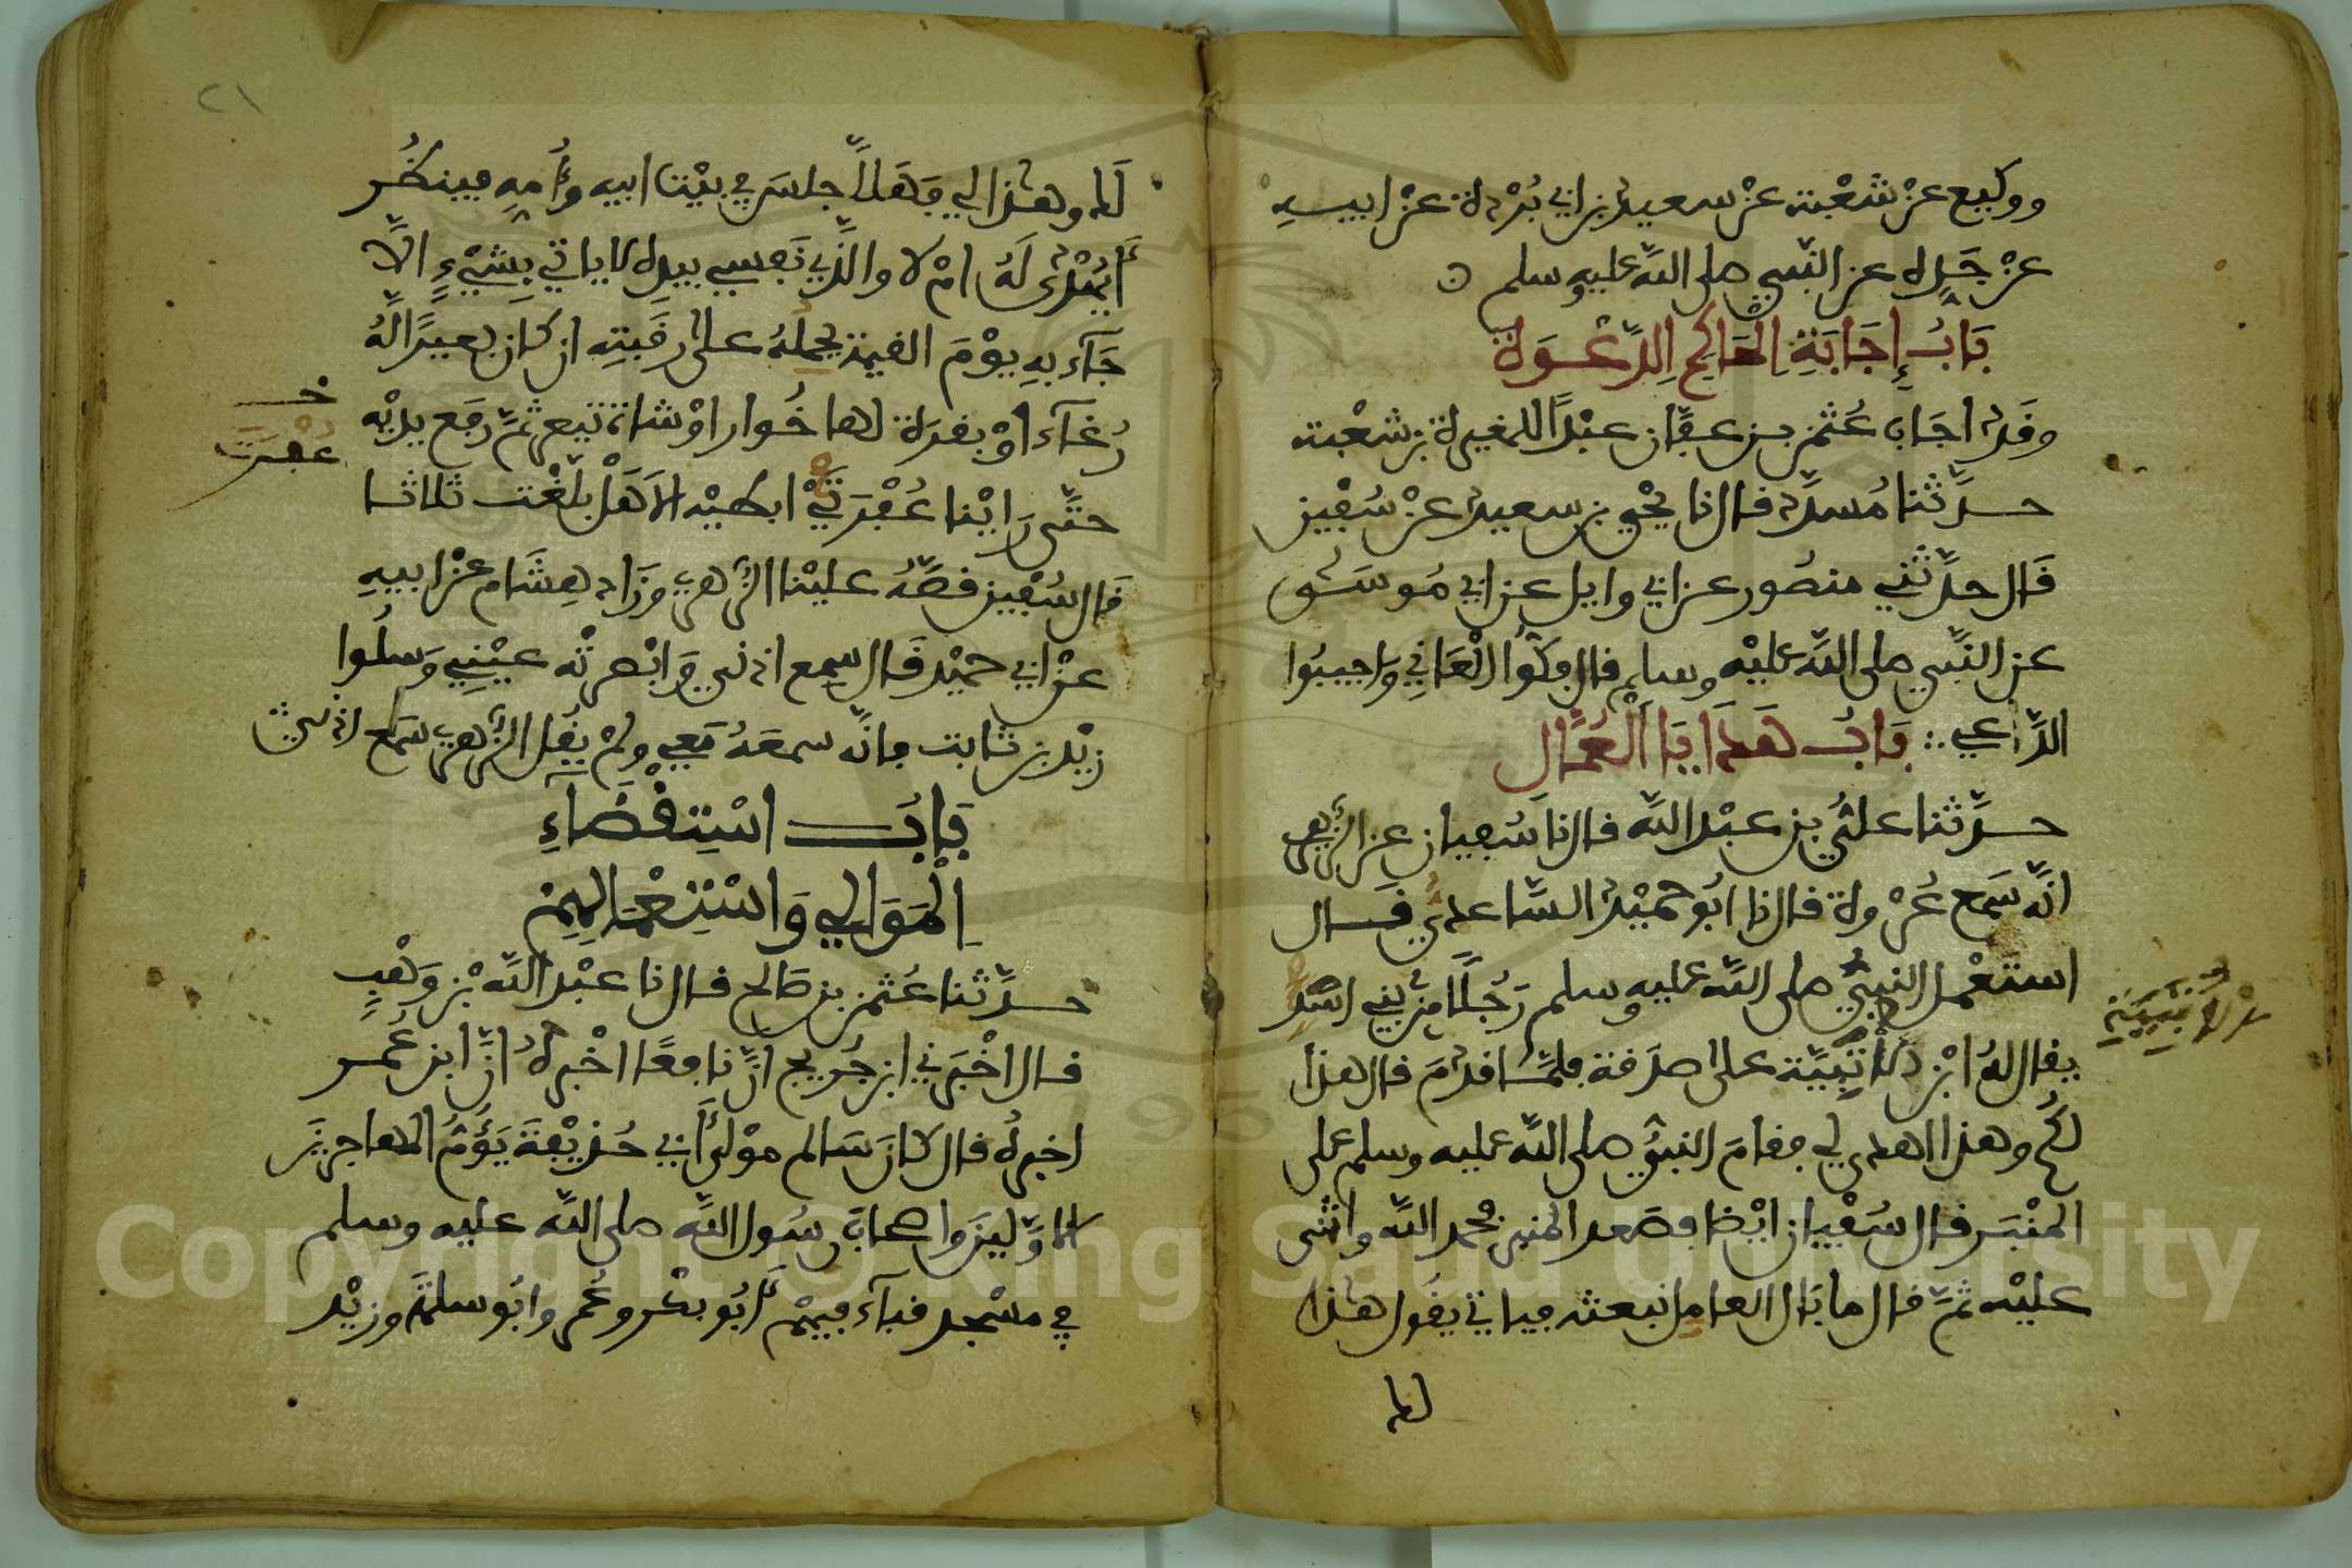 ووكيع عن شعبة عن سعيد بن ابي بُرْدة عن ابيه
عن جَدِّه عن النبي صلى الله عليه وسلم
بَابُ إِجَابَةِ الْحَاكِمِ الدَّعْوَةَ
وقد اجَاب عُثمن بن عفّان عبْدًا للمغيرة بن شعْبة
حدّثنا مُسدّد قال نا يحْيى بن سعيد عن سُفين
قَال حدّثني منصُور عن ابي وايل عن ابي مُوسَى
عن النّبي صلى الله عليْه وسلم قال فكُّوا الْعَانِي وَاجيبُوا
الدّاعي بَابُ هَدَايَا الْعُمَّالِ
حدّثنا عليُّ بن عبْد الله قال نا سُفيان عن الزُّهري
انّه سَمِع عُرْوة قال نا ابُو حميْد السّاعديُّ قَال
استعْمل النبيُّ صلى الله عليه وسلم رَجُلًا من بني اسْدٍ
يقال لهُ ابْن الاُتَبِيَّة على صدَقة فلمّا قدمَ قال هذا
لكُم وهذا اهدي لي فقامَ النبيُّ صلى الله عليه وسلم على
المنْبَر قال سُفْيان ايْضا فصَعد المنبر فحمد الله واثنى
عليْه ثمّ قال ما بَال العامل نبعثه فياتي يقُول هذا
لك
٢١
لك وهذا لي فَهَلَّا جلسَ في بيْت ابيه وأُمهِ فينظُر
أَيُهْدَى لَهُ امْ لا والذِي نَفسي بيده لا ياتي بِشيْءٍ الاَّ
جَآء بهِ يوْمَ القيمة يحْملهُ على رقَبتِه ان كان بعيرًا لهُ
رُغآء اوْ بقرَة لها خُوار اوْ شاة تيعر ثمّ رفَع يديْه
عُفرَتَيْ
حتَّى رَايْنا عُفْرَتَيْ ابطيْه الاَ هَلْ بلّغْت ثلاثا
قَال سُفْين قصّهُ عليْنا الزُّهري وزَاد هِشَام عن ابيهِ
عن ابي حميْد قَال سمِع اذني وَابْصرتْه عيْنِي وَسلُوا
زيْد بن ثابت فانّه سمعَهُ مَعي ولمْ يقُل الزُّهري سَمع اذني
بَابُ اسْتِقْضَآءِ
الْمَوَالِي وَاسْتِعْمَالِهِمْ
حدّثنا عُثمن بن صَالح قال نا عبْد الله بْن وَهْبٍ
قال اخْبرَني ابن جُريج انَّ نافعًا اخْبرهُ انَّ ابن عُمر
اخبرهُ قال كانَ سَالم موْلى أَبي حُذيْفةَ يَؤُمُّ المهاجرينَ
الاوّلينَ واصحابَ رسُول الله صلى الله عليه وسلم
في مسْجد قبآء فيهمْ أَبُو بكْر وعُمر وابُو سلمَة وزيْد